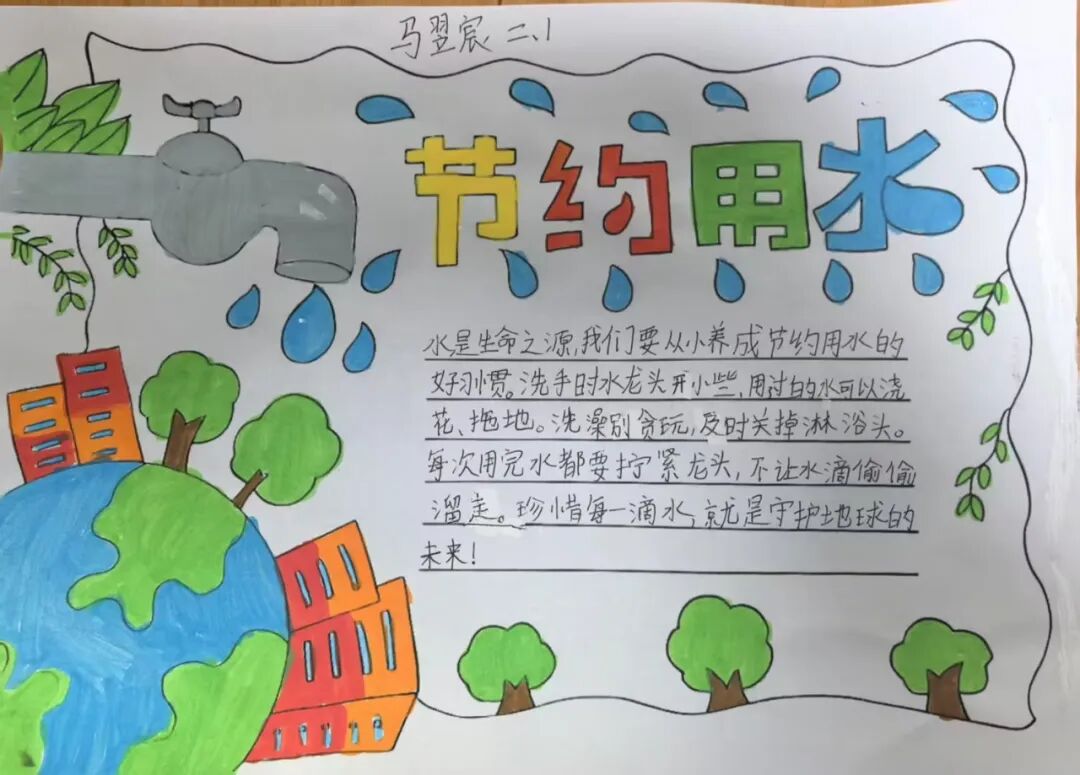 马翌宸 二、1
节约用水
水是生命之源,我们要从小养成节约用水的
好习惯。洗手时水龙头开小些,用过的水可以浇
花、拖地。洗澡别贪玩,及时关掉淋浴头。
每次用完水都要拧紧龙头,不让水滴偷偷
溜走。珍惜每一滴水,就是守护地球的
未来!